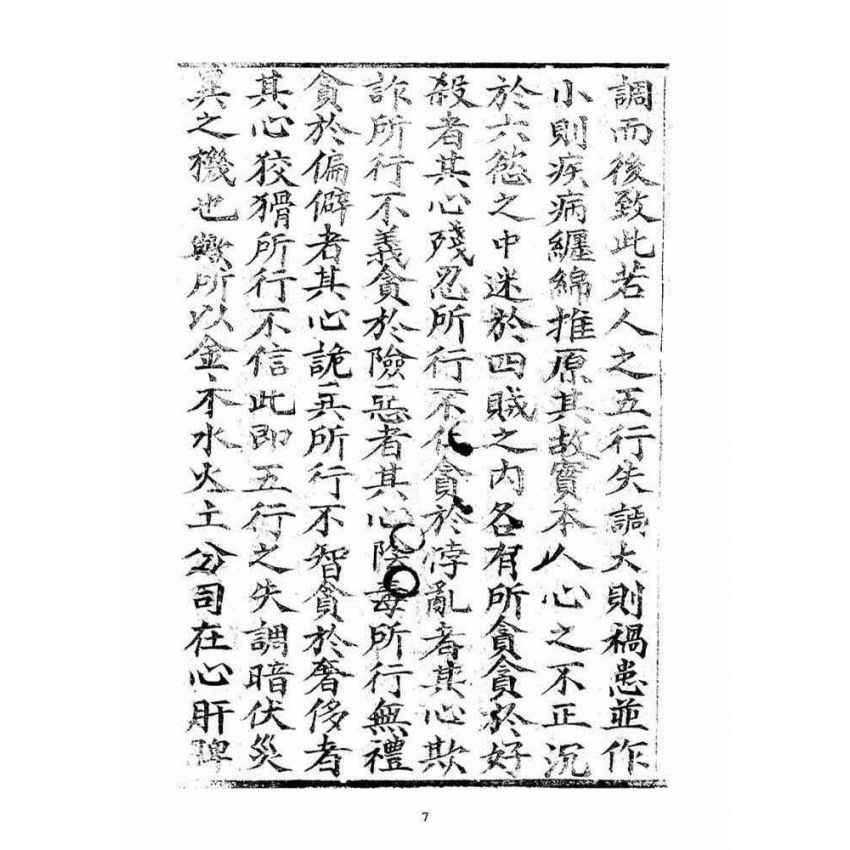 調而後致此若人之五行失調大則禍患並作
小則疾病纏綿推原其故實本人心之不正沉
於六慾之中迷於四賊之内各有所貪貪於好
殺者其心殘忍所行不仁貪於悖亂者其心欺
詐所行不義貪於險惡者其心陰毒所行無禮
貪於偏僻者其心詭異所行不智貪於奢侈者
其心狡猾所行不信此即五行之失調暗伏災
異之機也歟所以金木水火土分司在心肝脾
7